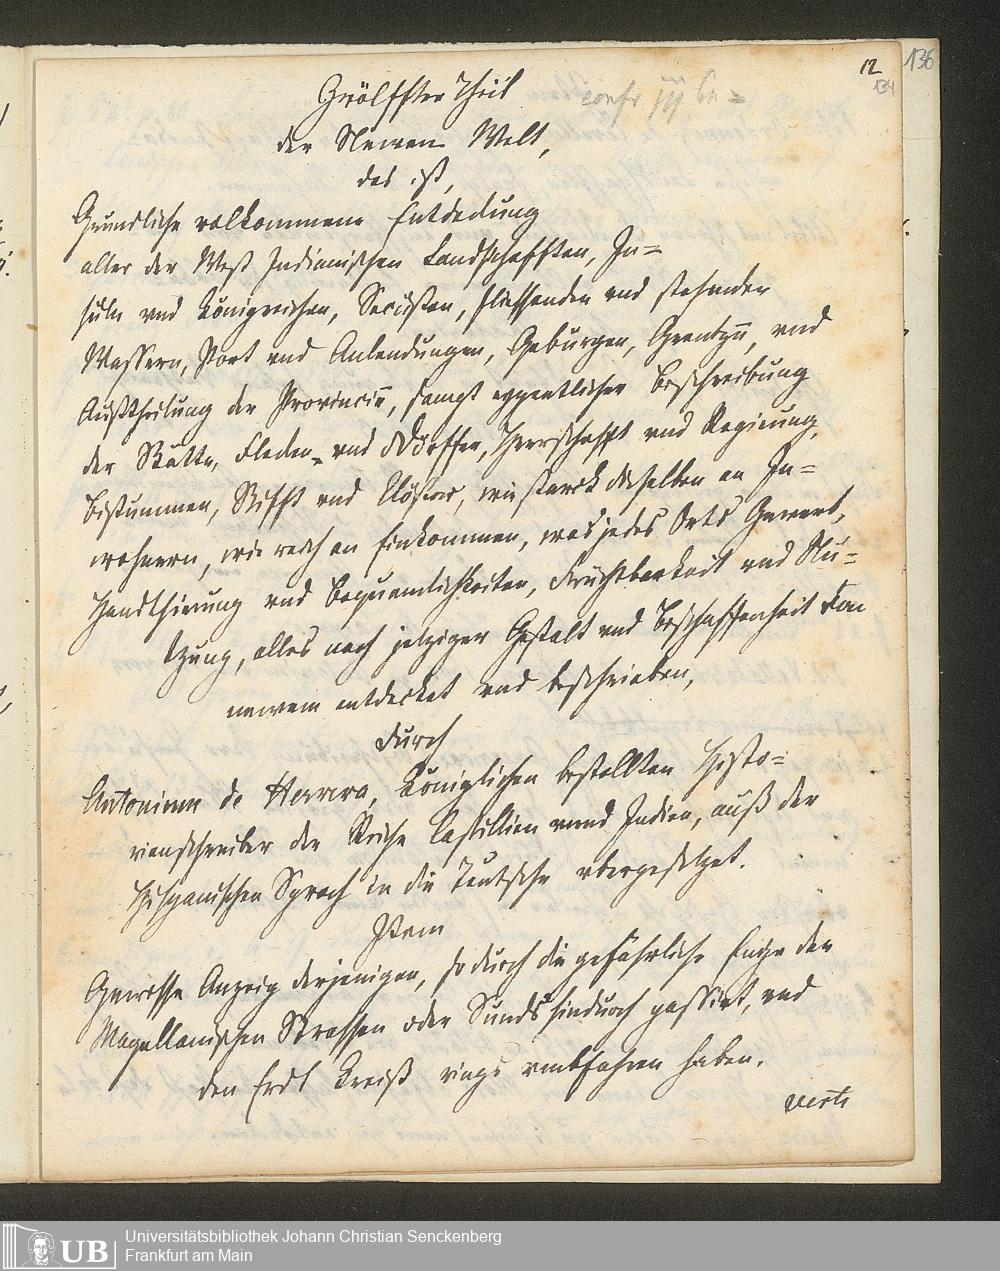 12
136
134
Zwölffter Theil
confr
der Newen Welt,
das ist,
Gründliche volkommene Entdeckung
aller der West Indianischen Landschafften, In=
suln und Königreichen, Seecüsten, fliessenden und stehenden
Wassern, Port und Anlendungen, Gebürgen, Grentzen, und
Außtheilung der Provincien, sampt eygentlicher Beschreibung
der Stätte, Flecken, und Dörffer, Herrschafft und Regierung,
Bistummen, Stifft und Clöster, wie starck dieselben an In=
wohnern, wie reich an Einkommen, was jedes Orts Gewerb,
Handthierung und Bequemlichkeiten, Fruchtbarkeit und Nu=
tzung, alles nach jetziger Gestalt und Beschaffenheit von
newem entdecket und beschrieben,
durch
Antonium de Herrera, Königlichen bestellten Histo=
rienschreiber der Reiche Castilien unnd Indien, auß der
Hispanischen Sprach in die Teutsche ubergesetzet.
Item
Gewisse Anzeig derjenigen, so durch die gefährliche Enge der
Magellanischen Strassen oder Sunds hindurch passirt, und
den Erdt Kreiß rings umbfahren haben.
verte
UB
Universitätsbibliothek Johann Christian Senckenberg
Frankfurt am Main